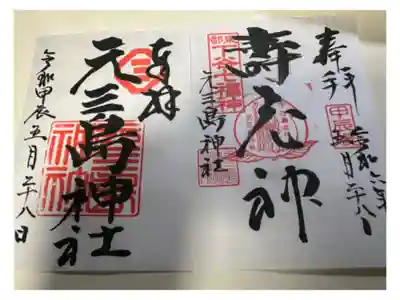 奉拝
壽老神
東都
下谷七福神
元三島神社
令和六年
五月二十八日
奉拝
元三島神社
令和甲辰五月二十八日